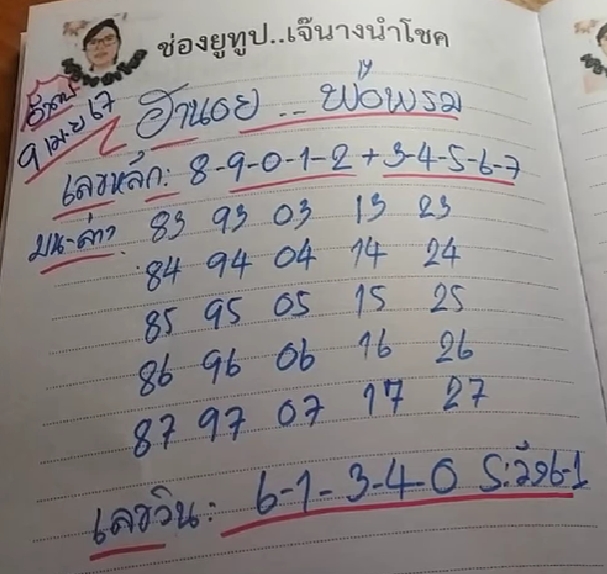 ช่องยูทูป..เจ๊นางนำโชค
อังคาร
9 เม.ย 67
ฮานอย .. พ่อพรม
เลขหลัก: 8-9-0-1-2 + 3-4-5-6-7
บน-ล่าง
83 93 03 13 23
84 94 04 14 24
85 95 05 15 25
86 96 06 16 26
87 97 07 17 27
เลขวิน: 6-1-3-4-0 ระวัง6-1